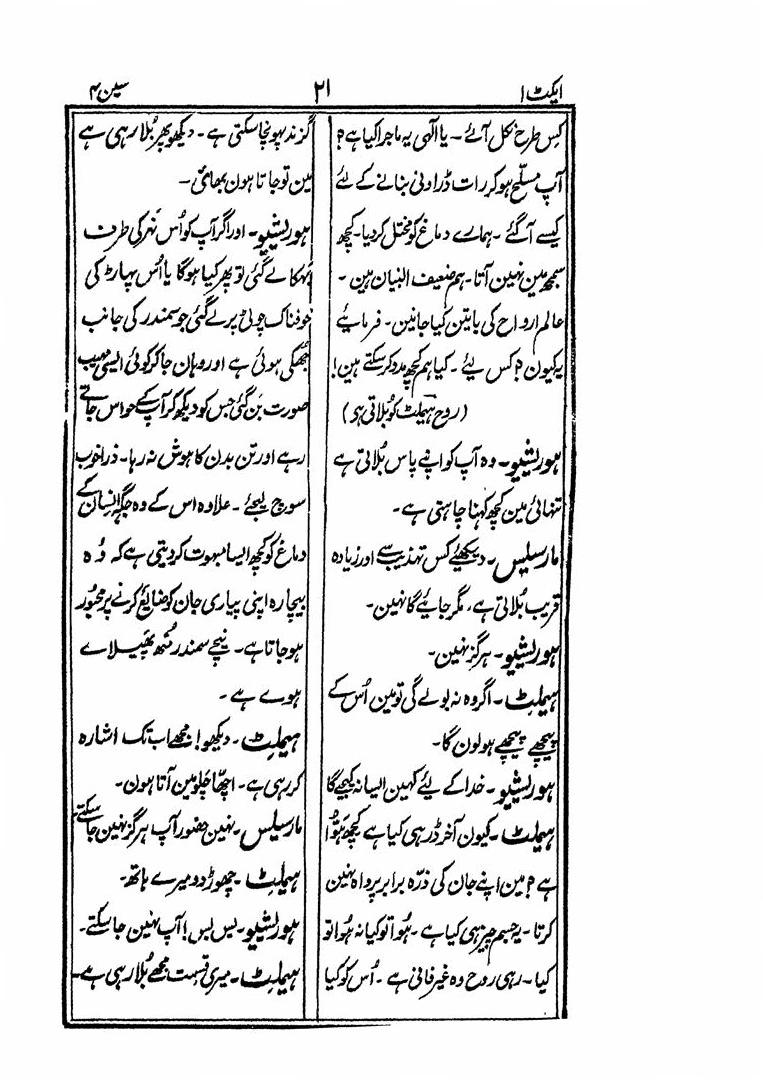 ایکٹ ۱
۲۱
سین ۴
کس طرح نکل آئے۔ یا الٰہی یہ ماجرا کیا ہے؟
آپ مسلّح ہوکر رات ڈراونی بنانے کے لئے
کیسے آگئے۔ ہمارے دماغ کو مختل کردیا۔ کچھ
سمجھ مین نہین آتا۔ ہم ضعیف البنیان ہین۔
عالم ارواح کی باتین کیا جانین۔ فرمایئے
یہ کیون؟ کس لیئے۔ کیا ہم کچھ مدد کرسکتے ہین!
(روح ہیملٹ کو بُلاتی ہی)
ہوریشیو۔ وہ آپ کو اپنے پاس بُلاتی ہے
تنہائی مین کچھ کہنا چاہتی ہے۔
مارسیلس۔ دیکھئے کس تہذیب سے اور زیادہ
قریب بُلاتی ہے، مگر جایئے گا نہین۔
ہوریشیو۔ ہرگز نہین۔
ہیملٹ۔ اگر وہ نہ بولے گی تو مین اُس کے
پیچھے پیچھے ہولون گا۔
ہوریشیو۔ خدا کے لیئے کہین ایسا نہ کیجے گا
ہیملٹ۔ کیون آخر ڈر ہی کیا ہے کچھ ہُوا
ہے؟ مین اپنے جان کی ذرّہ برابر پرواہ نہین
کرتا۔ یہ جسم چیز ہی کیا ہے۔ ہُوا تو کیا نہ ہُوا تو
کیا۔ رہی روح وہ غیر فانی ہے۔ اُس کو کیا
گزند پہونچا سکتی ہے۔ دیکھو پھر بُلا رہی ہے
مین تو جاتا ہون بھائی۔
ہوریشیو۔ اور اگر آپ کو اُس نہر کی طرف
بہکا لے گئی تو پھر کیا ہوگا یا اُس پہاڑ کی
خوفناک چوٹی پر لے گئی جو سمندر کی جانب
جھکی ہوئی ہے اور وہان جاکر کوئی ایسی مہیب
صورت بن گئی جس کو دیکھ کر آپ کے حواس جاتے
رہے اور تن بدن کا ہوش نہ رہا۔ ذرا خوب
سوچ لیجئے۔ علاوہ اس کے وہ جگہ انسان کے
دماغ کو کچھ ایسا مبہوت کردیتی ہے کہ وُہ
بیچارہ اپنی پیاری جان کو ضائع کرنے پر مجبور
ہوجاتا ہے۔ نیچے سمندر مُنھ پھیلاے
ہوے ہے۔
ہیملٹ۔ دیکھو! مجھے اب تک اشارہ
کر رہی ہے۔ اچھا چلو مین آتا ہون۔
مارسیلس۔ نہین حضور آپ ہرگز نہین جاسکتے
ہیملٹ۔ چھوڑ دو میرے ہاتھ۔
ہوریشیو۔ بس بس! آپ نہین جاسکتے۔
ہیملٹ۔ میری قسمت مجھے بُلا رہی ہے۔